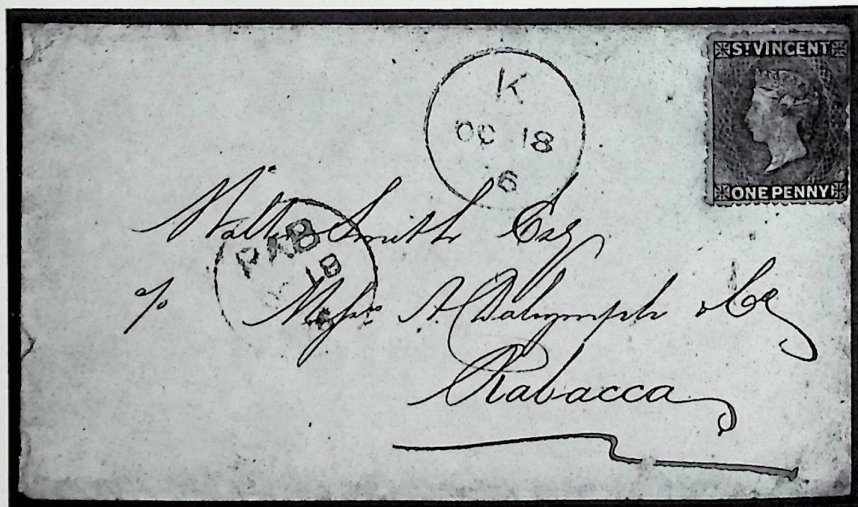 ST VINCENT
ONE PENNY
K
OC 18
6
Walter Smith Esq
PAB
18
c/o Messrs A Dalrymple & Co
Rabacca